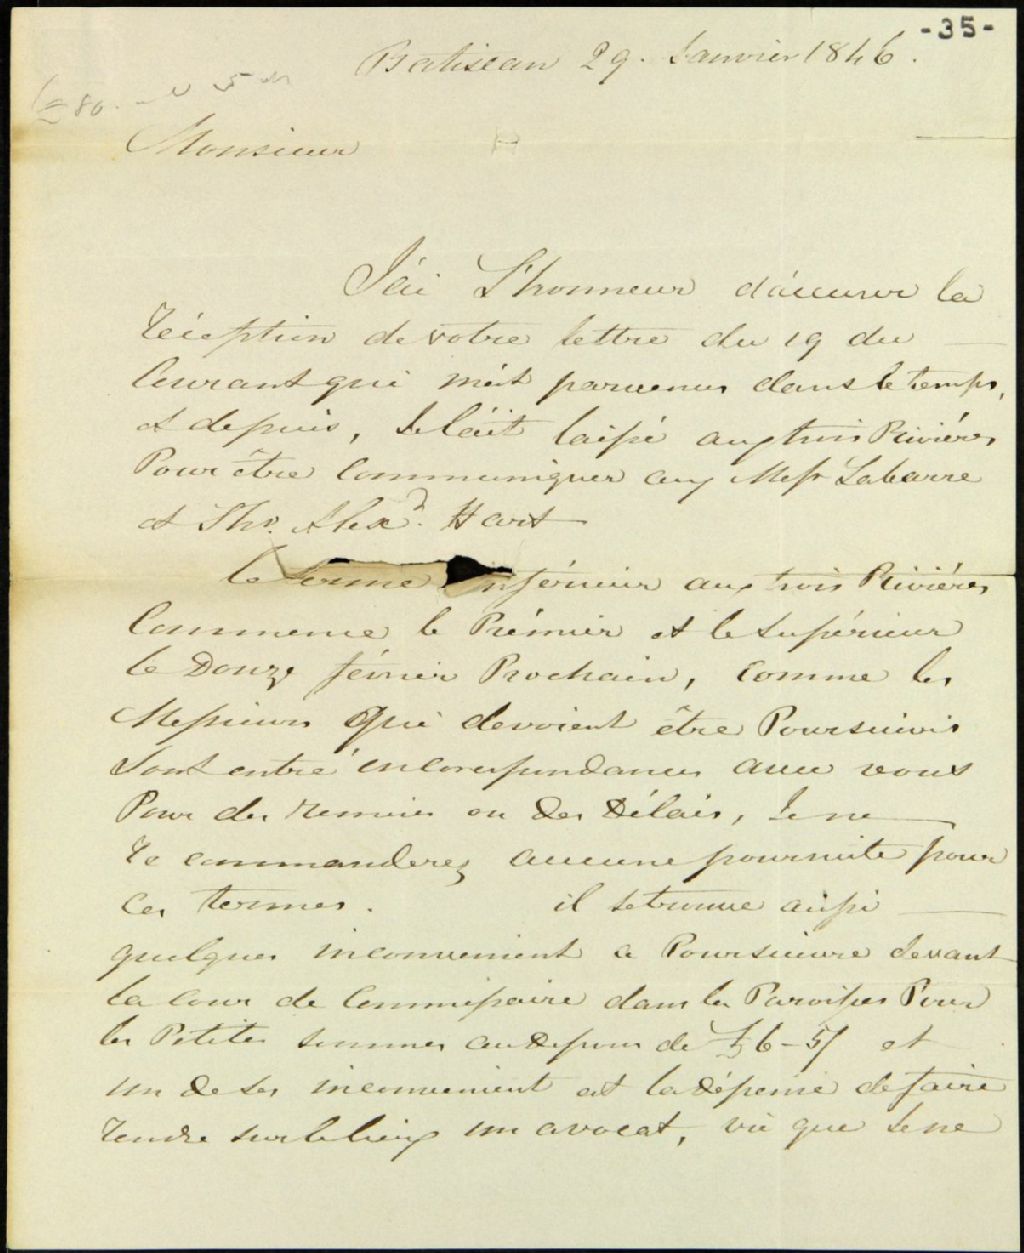 -35-
Batiscan 29. Janvier 1846.
Monsieur
J'ai L'honneur d'accuser la
Réception de votre lettre du 19 du
Courant qui m'est parvenue dans le temps,
et depuis, Je l'ait laissé aux trois Riviéres
Pour être Communiquer aux Messr Labarre
et Ths. Alexd. Hart
le Terme inférieur aux trois Riviéres
Commence le Prémier et le Supérieur
le Douze février Prochain, Comme les
Messieurs Qui devoient être Poursuivis
Sont entré en correspondance avec vous
Pour des remises ou des Délais, Je ne
Recommanderez aucune poursuite pour
Ces termes. il se trouve aussi
quelques inconvenient a Poursuivre devant
la Cour de Commissaire dans les Paroisses Pour
les Petites sommes au dessous de £6-5/ et
un de ses inconvenient est la dépense de faire
rendre sur le lieux un avocat, vû que Je ne